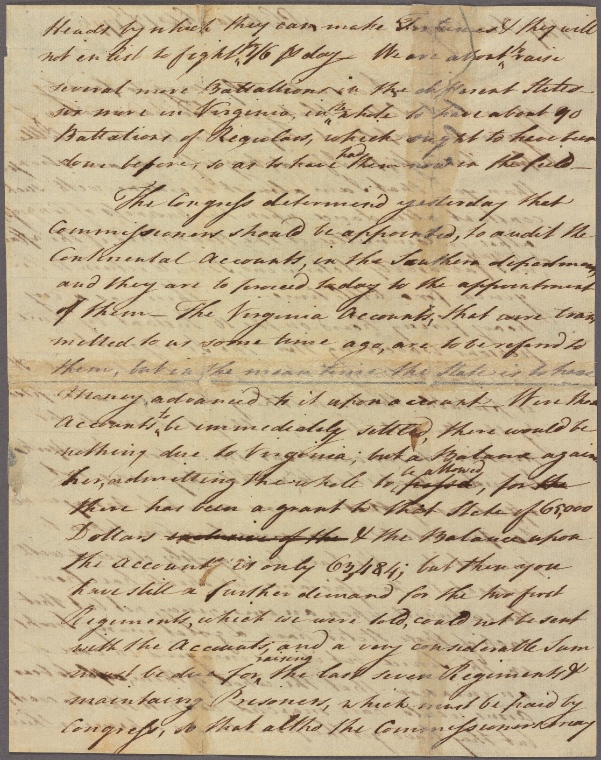 Heads by which they can make & they will
not enlist to fight 7/6 pr day. We are about to raise
several more Battallions in the different States
six more in Virginia, in the whole to have about 90
Battalions of Regulars, which ought to have been
done before, so as to have had them now in the field—
The Congress determind yesterday that
Commissioners should be appointed, to audit the
Continental Accounts, in the Southern department
and they are to proceed today to the appointment
of them— The Virginia Accounts, that were trans
mitted to us some time ago, are to be referd to
them, but in the mean time the State is to have
Money advanced to it upon account. Were those
Accounts to be immediately settled, there would be
nothing due to Virginia; but a Balance again
her, admitting the whole to be allowed, for the
there has been a grant to that State of 65,000
Dollars exclusive of the & the Balance upon
the Account is only 63,484; but then you
have still a further demand for the two first
Regiments, which we were told, could not be sent
with the Accounts, and a very considerable Sum
must be due for raising the last seven Regiments &
maintaing Prisoners, which must be paid by
Congress, so that altho the Commissioners may